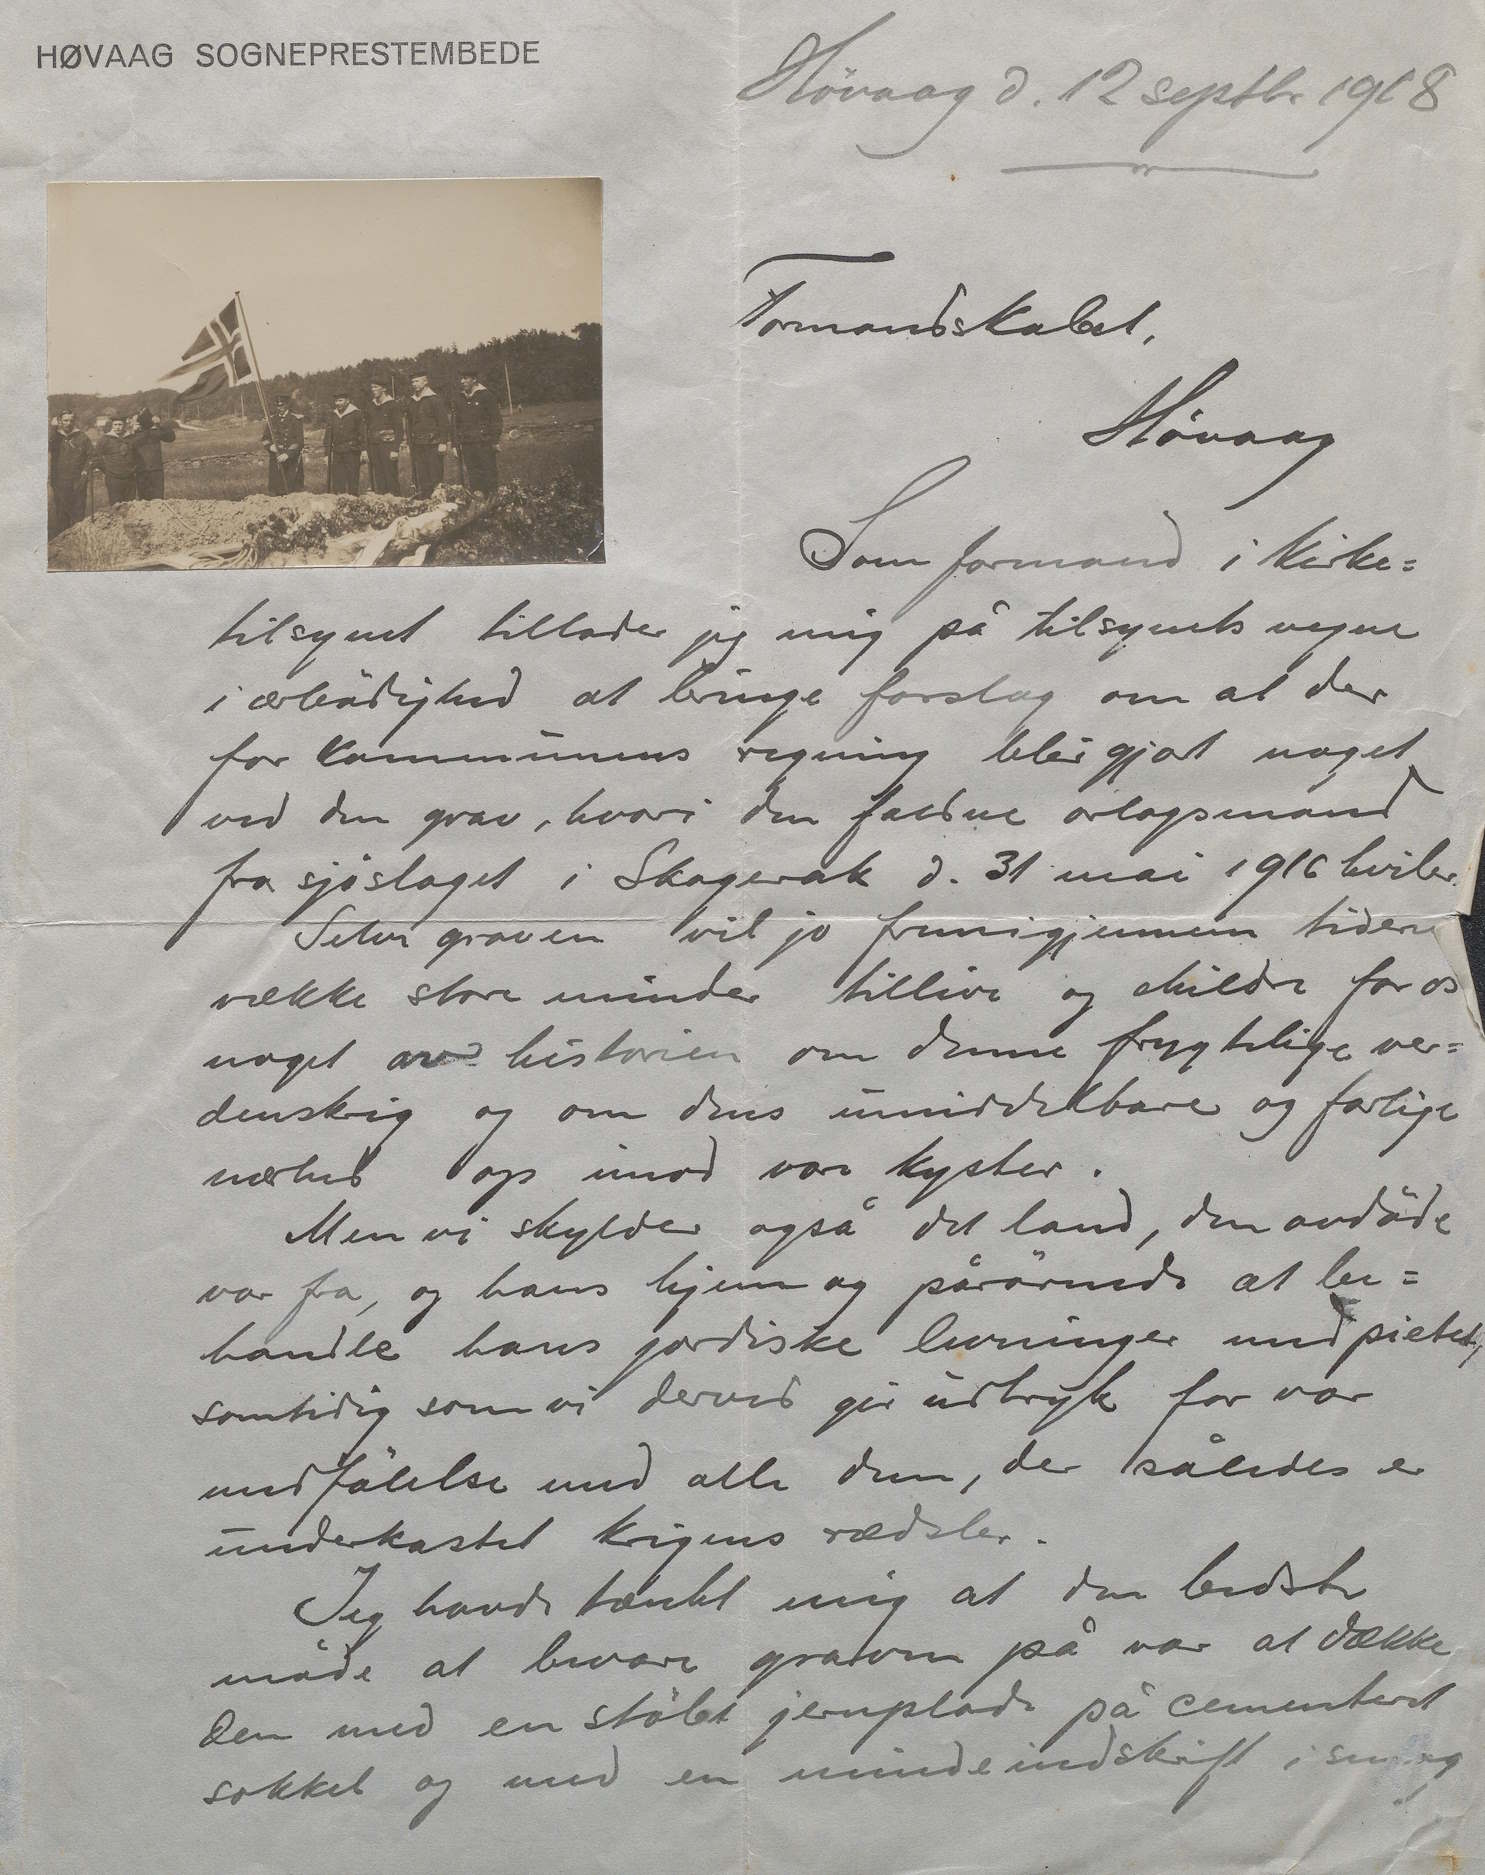 HØVAAG SOGNEPRESTEMBEDE
Hövaag d. 12 septbr 1918
Formandskabet,
Hövaag
Som formand i kirke=
tilsynet tillader jeg mig på tilsynets vegne
i ærbödighed at bringe forslag om at der
for kommunens regning blir gjort noget
ved den grav, hvori den faldne orlogsmand
fra sjöslaget i Skagerak d. 31 mai 1916 hviler.
Selve graven vil jo fremigjennem tiderne
vække store minder tillive og skildre for os
noget av historien om denne frygtelige ver=
denskrig og om dens umiddelbare og farlige
nærhed op imod vore kyster.
Men vi skylder også det land, den avdöde
var fra, og hans hjem og pårörende at be=
handle hans jordiske levninger med pietet,
samtidig som vi derved gir udtryk for vor
medfölelse med alle dem, der således er
underkastet krigens rædsler.
Jeg havde tænkt mig at den bedste
måde at bevare graven på var at dække
den med en stöbt jernplade på cementeret
sokkel og med en mindeindskrift i